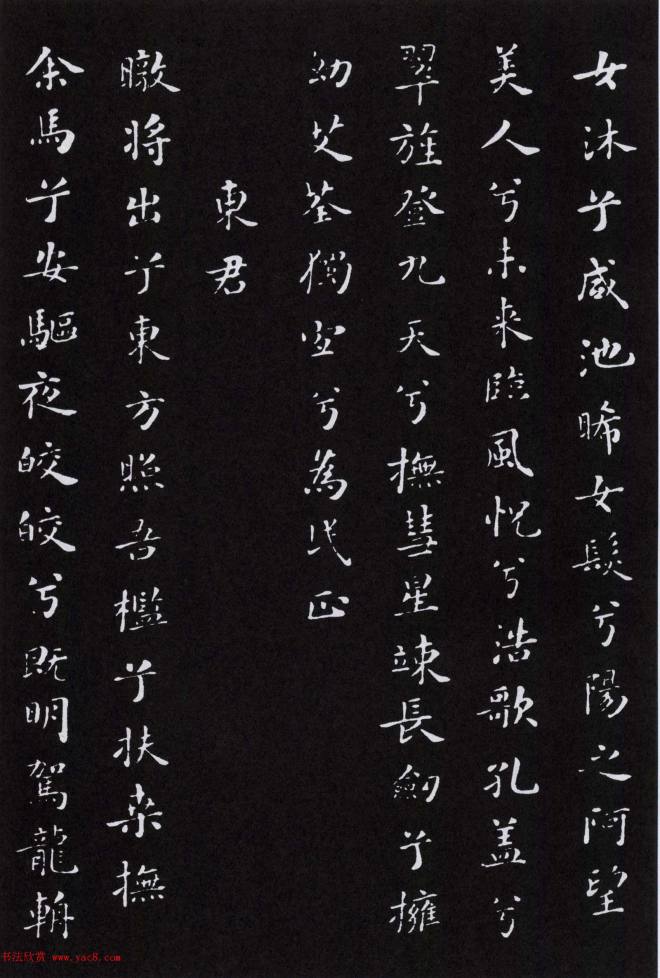 女沐兮咸池晞女髮兮陽之阿望
美人兮未來臨風怳兮浩歌孔盖兮
翠旌登九天兮撫彗星竦長劍兮擁
幼艾荃獨宜兮為民正
東君
暾將出兮東方照吾檻兮扶桒撫
余馬兮安驅夜皎皎兮既明駕龍輈
书法欣赏 www.yac8.com